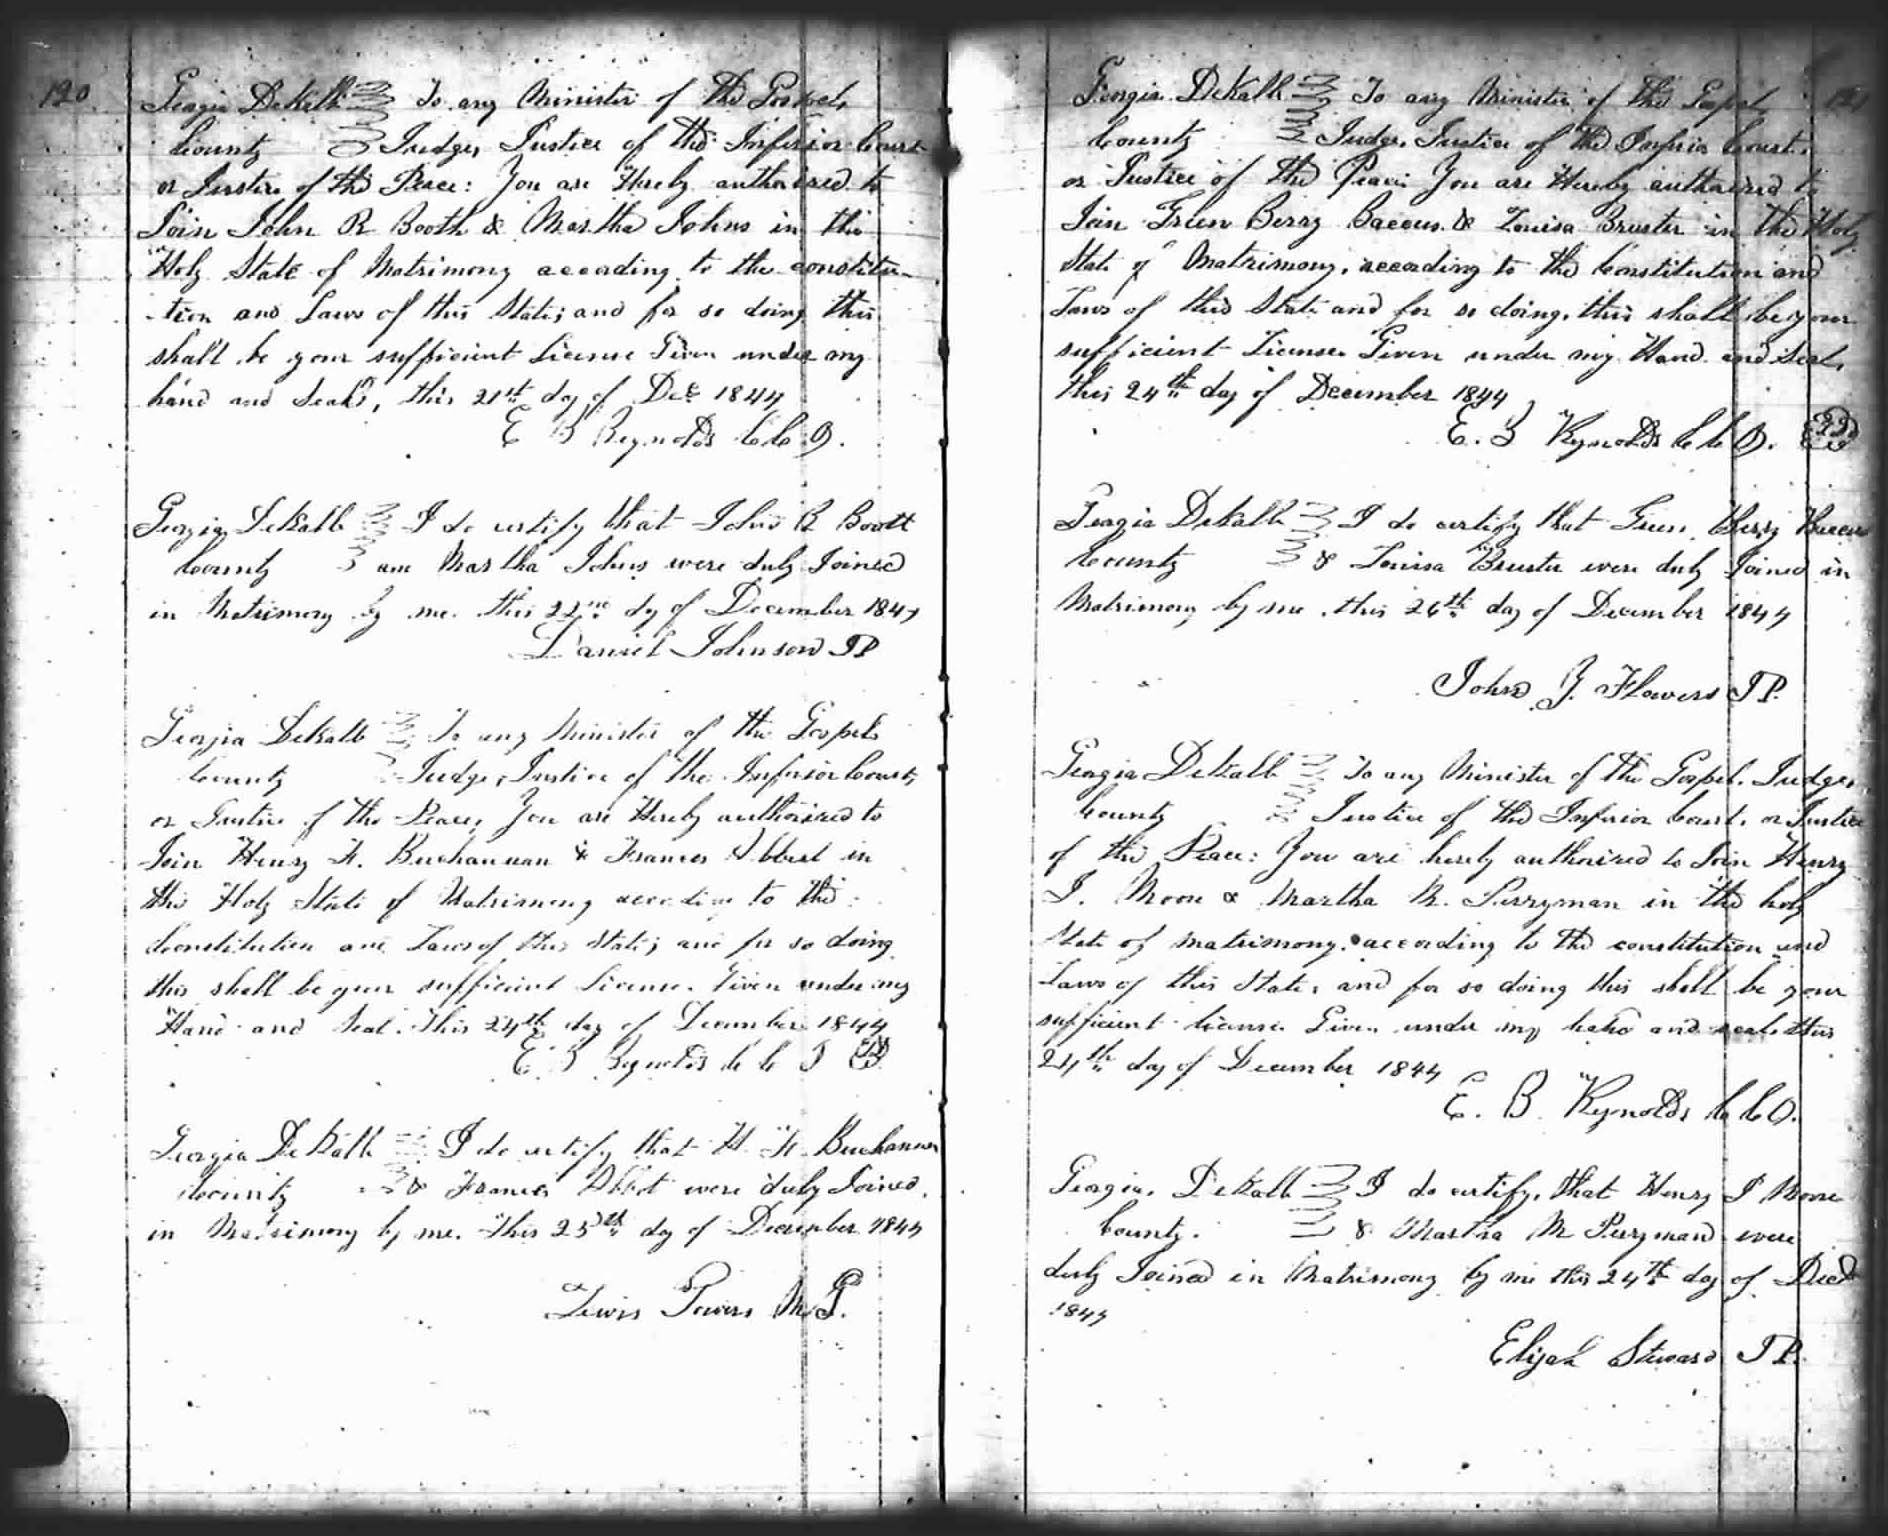 120
Georgia DeKalb To any Minister of the Gospel
County Judge, Justice of the Inferior Court
or Justice of the Peace: You are Hereby authorised to
Join John R Booth & Martha Johns in the
Holy State of Matrimony according to the constitu-
-tion and Laws of this State; and for so doing this
shall be your sufficient License Given under my
hand and Seal, this 21st day of Dec 1844
E B Reynolds C C O.
Georgia DeKalb I do certify that John R Booth
County and Martha Johns were duly Joined
in Matrimony by me this 22nd dy of December 1844
Daniel Johnson JP
Georgia DeKalb To any Minister of the Gospel
County Judge, Justice of the Inferior Court,
or Justice of the Peace, You are Hereby authorised to
Join Henry F. Buchannan & Frances Abbert in
the Holy State of Matrimony according to the
Constitution and Laws of this State; and for so doing
this shall be your sufficient License. Given under my
Hand and Seal. this 24th day of December 1844
E B Reynolds C C O
Georgia DeKalb I do certify that H. F. Buchannan
County & Frances Abbot were duly Joined
in Matrimony by me. this 25th day of December 1844
Lewis Towers M G.
121
Georgia DeKalb To any Minister of the Gospel
County Judge, Justice of the Inferior Court.
or Justice of the Peace: You are Hereby authorised to
Join Green Berry Baccus & Louisa Bruster in the Holy
State of Matrimony, according to the Constitution and
Laws of this State and for so doing, this shall be your
sufficient License Given under my Hand and Seal,
this 24th day of December 1844
E. B Reynolds C C O.
Georgia DeKalb I do certify that Green Berry Baccus
County & Louisa Bruster were duly Joined in
Matrimony by me this 26th day of December 1844
John Y. Flowers JP.
Georgia DeKalb To any Minister of the Gospel. Judge,
County Justice of the Inferior Court, or Justice
of the Peace: You are hereby authorised to Join Henry
I. Moore & Martha M. Perryman in the holy
State of matrimony, according to the constitution and
Laws of this State, and for so doing this shall be your
sufficient license Given under my hand and seal this
24th day of December 1844
E. B. Reynolds C C O.
Georgia. DeKalb I do certify, that Henry I Moore
County. & Martha M Perryman were
duly Joined in Matrimony by me this 24th day of Dec
1844
Elijah Steward JP.